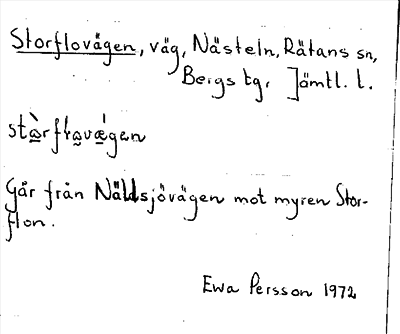 Storflovägen, väg, Nästeln, Rätans sn,
Bergs tg, Jämtl. l.
stà̱rfɬa̱vǽ̱gen
Går från Näldsjövägen mot myren Stor-
flon.
Ewa Persson 1972